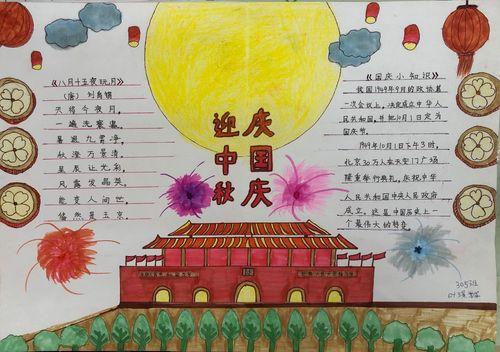 《八月十五夜玩月》
(唐) 刘禹锡
天将今夜月,
一遍洗寰瀛。
暑退九霄净,
秋澄万景清。
星辰让光彩,
风露发晶英。
能变人间世,
翛然是玉京。
迎 庆
中 国
秋 庆
《国庆小知识》
我国1949年9月的政协第
一次会议上,决定成立中华人
民共和国,并把10月1日定为
国庆节。
1949年10月1日下午3时,
北京30万人在天安门广场
隆重举行典礼,庆祝中华
人民共和国中央人民政府
成立。这是中国历史上一
个最伟大的转变
305班